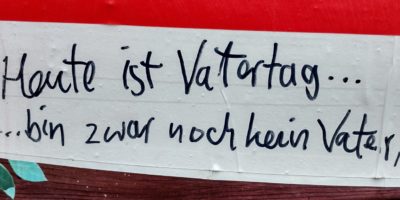 Heute ist Vatertag...
...bin zwar noch kein Vater,